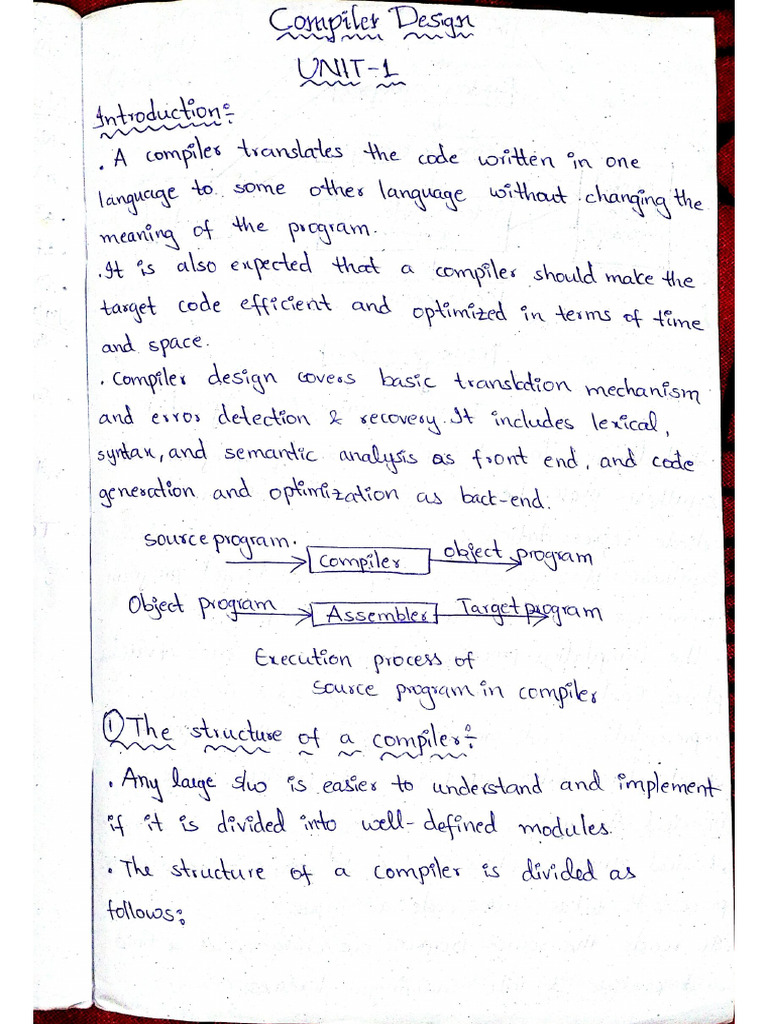 Compiler Design
UNIT-1
Introduction:-
. A compiler translates the code written in one
language to some other language without changing the
meaning of the program.
. It is also expected that a compiler should make the
target code efficient and optimized in terms of time
and space.
. Compiler design covers basic translation mechanism
and error detection & recovery. It includes lexical,
syntax, and semantic analysis as front end, and code
generation and optimization as back-end.
source program. → Compiler → object program
Object program → Assembler → Target program
Execution process of
source program in compiler
① The structure of a compiler:-
. Any large s/w is easier to understand and implement
if it is divided into well-defined modules.
. The structure of a compiler is divided as
follows: